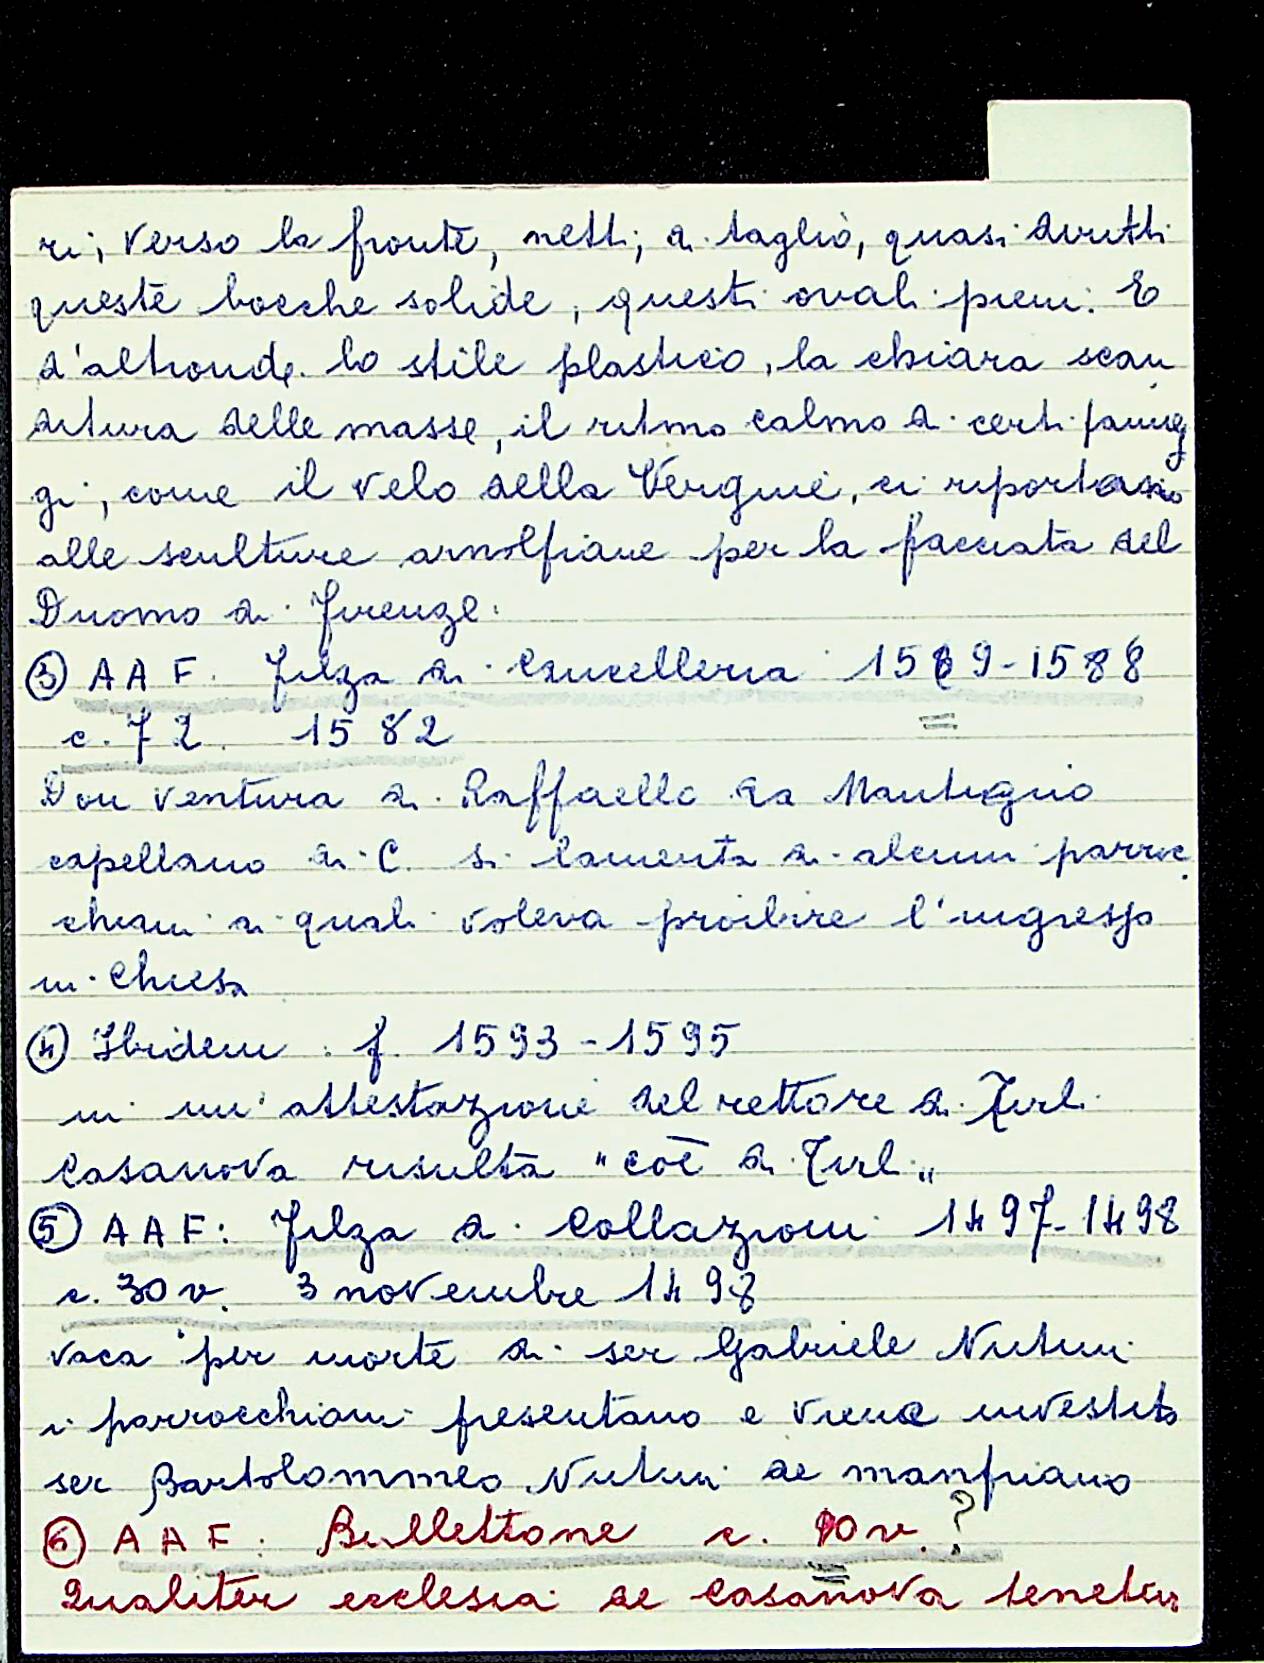 ri, verso la fronte, netti, a taglio, quasi diritti
queste bocche solide, questi ovali pieni. E
d'altronde lo stile plastico, la chiara scan
ditura delle masse, il ritmo calmo di certi paneg
gi, come il velo della Vergine, ci riportano
alle sculture arnolfiane per la facciata del
Duomo di Firenze.
③ AAF. Filza di Cancelleria 1569-1588
c. 72. 1582
Don Ventura di Raffaello da Mantignio
capellano di C. si lamenta di alcuni parroc
chiani ai quali voleva proibire l'ingresso
in Chiesa
④ Ibidem. f. 1593-1595
in un'attestazione del rettore di Tirli
Casanova risulta "coe di Tirli"
⑤ AAF: Filza di Collazioni 1497-1498
c. 30 v. 3 novembre 1498
vaca per morte di ser Gabriele Nutini
i parrocchiani presentano e viene investito
ser Bartolommeo Nutini de manfriano
⑥ AAF: Bullettone c. 90 v. ?
Qualiter ecclesia de Casanova tenetur